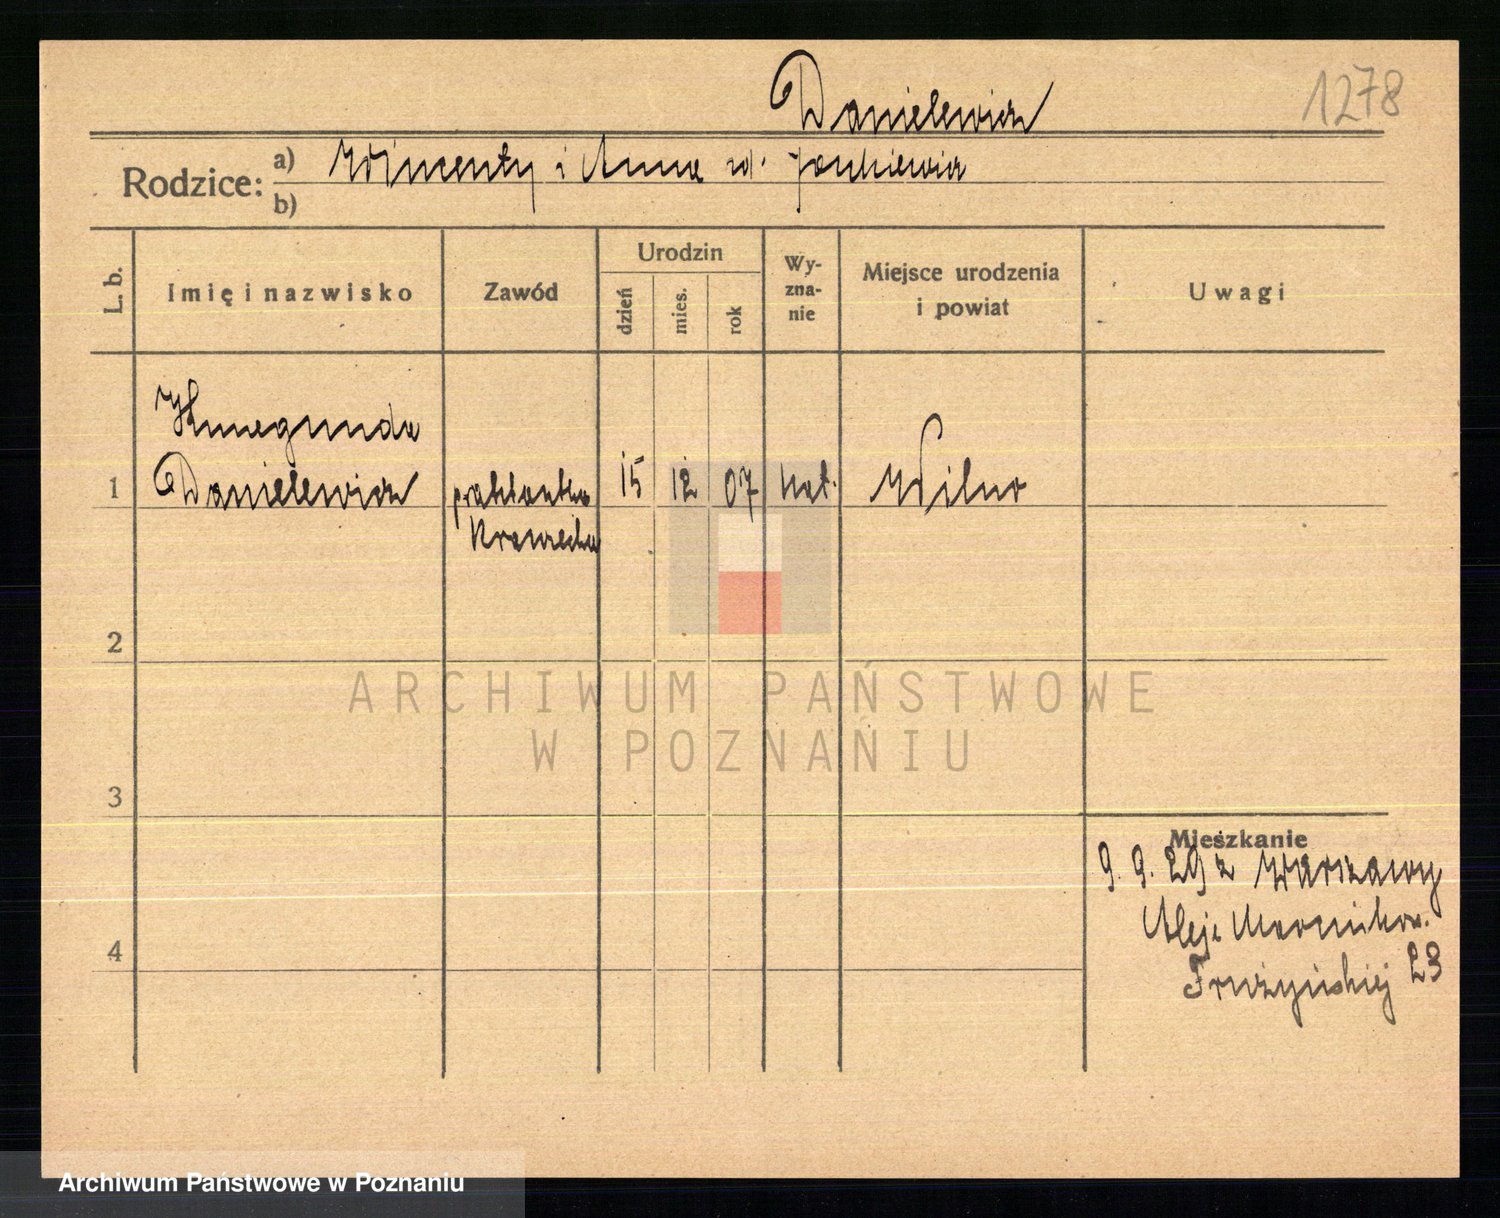 Danielewicz
1278
Rodzice: a) Wincenty i Anna zd. Jankiewicz
b)
L. b.
Imię i nazwisko
Zawód
Urodzin
dzień
mies.
rok
Wy-
zna-
nie
Miejsce urodzenia
i powiat
Uwagi
Kunegunda
1 Danielewicz praktantka 15 12 07 kat. Wilno
Krawiecka
2
ARCHIWUM PAŃSTWOWE
W POZNANIU
3
Mieszkanie
9. 9. 29 z Warszawy
Aleje
4
23
Archiwum Państwowe w Poznaniu